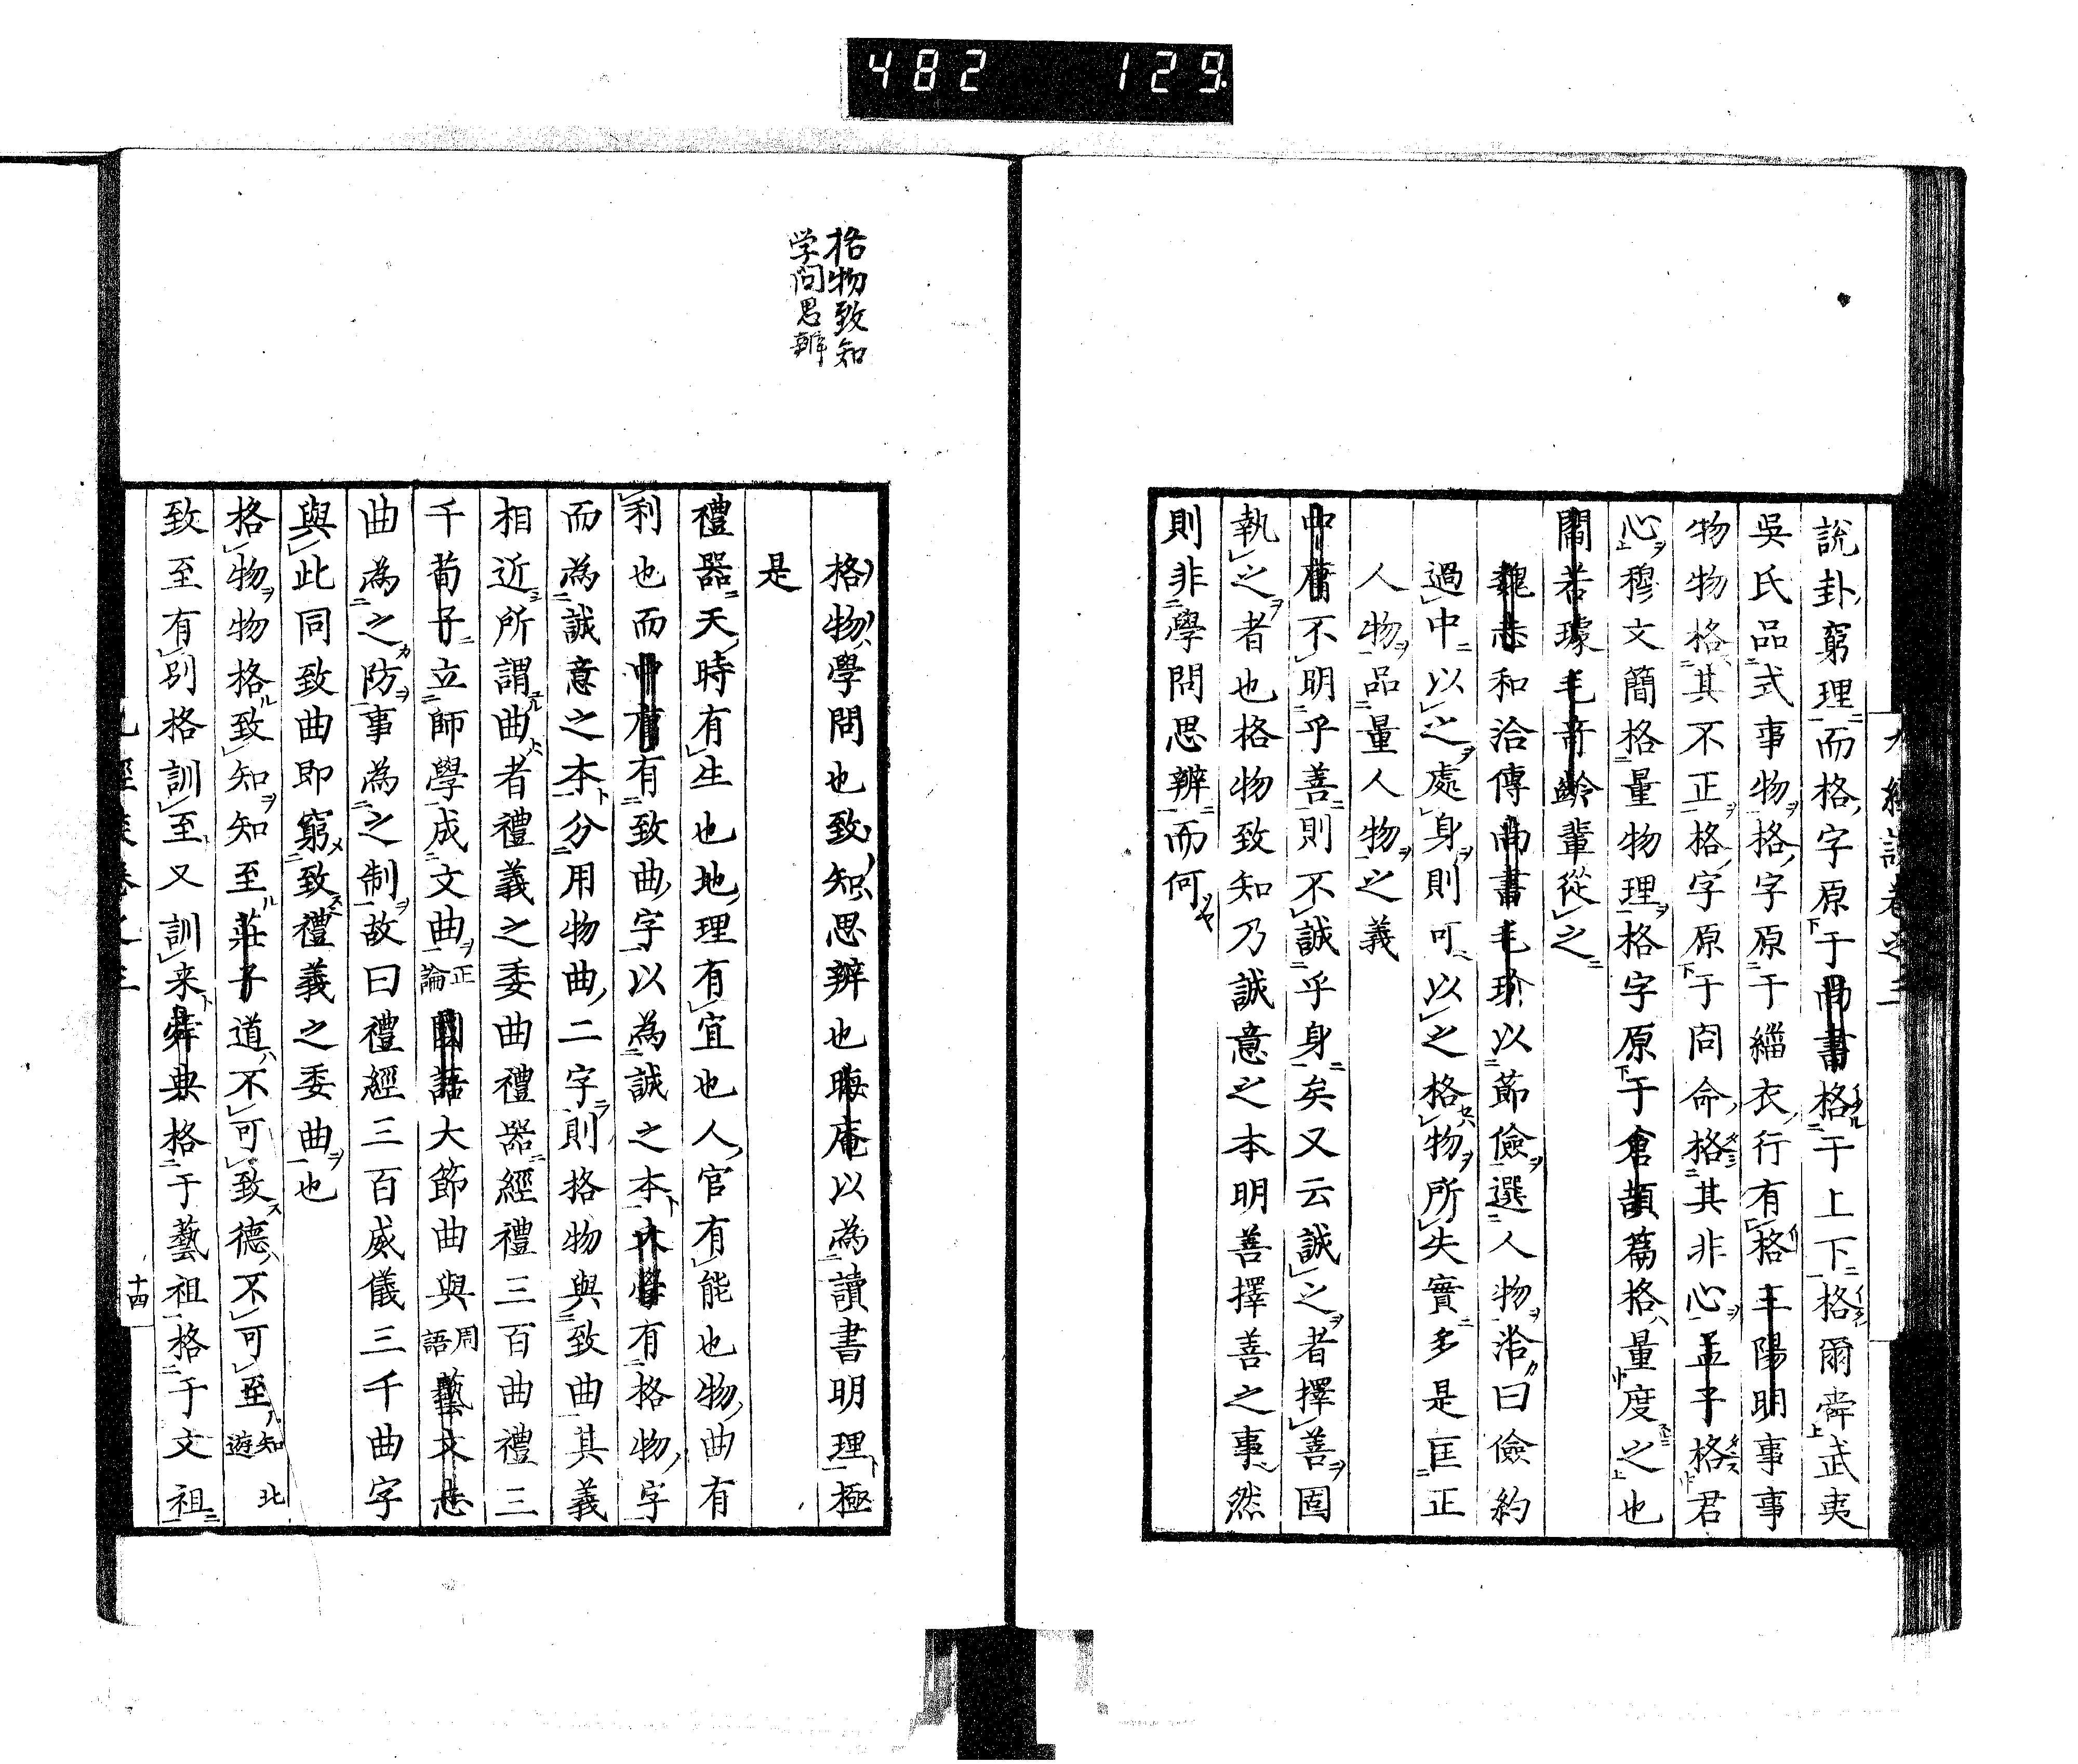 482 129
九經談卷之三
說卦窮理而格字原于尚書格于上下格爾舜武夷
吳氏品式事物格字原于緇衣行有格王陽明事事
物物格其不正格字原于冏命格其非心孟子格君
心穆文簡格量物理格字原于倉頡篇格量度之也
閻若璩毛奇齡輩從之
魏志和洽傳尚書毛玠以節儉選人物洽曰儉約
過中以之處身則可以之格物所失實多是匡正
人物品量人物之義
中庸不明乎善則不誠乎身矣又云誠之者擇善固
執之者也格物致知乃誠意之本明善擇善之事然
則非學問思辨而何
格物致知
学問思辨
格物學問也致知思辨也晦庵以為讀書明理極
是
禮器天時有生也地理有宜也人官有能也物曲有
利也而中庸有致曲字以為誠之本大學有格物字
而為誠意之本分用物曲二字則格物與致曲其義
相近所謂曲者禮義之委曲禮器經禮三百曲禮三
千荀子立師學成文曲正論國語大節曲與周語藝文志
曲為之防事為之制故曰禮經三百威儀三千曲字
與此同致曲即窮致禮義之委曲也
格物物格致知知至莊子道不可致德不可至知北遊
致至有別格訓至又訓来舜典格于藝祖格于文祖
十四